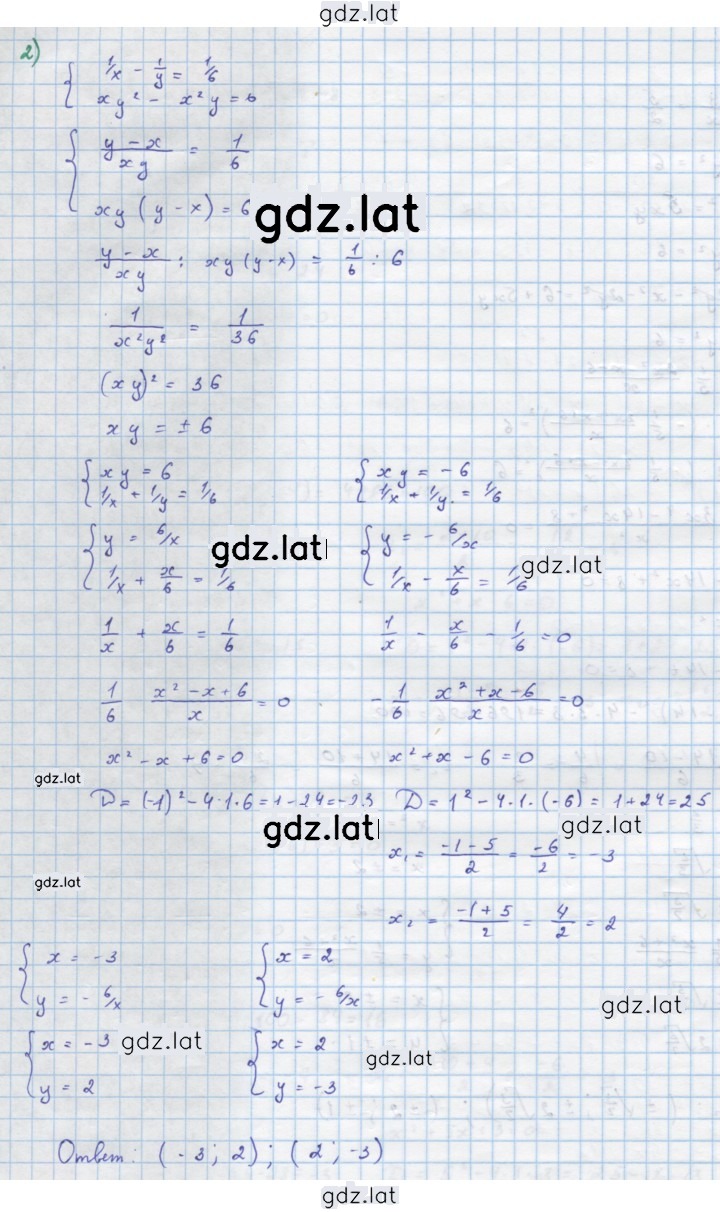 gdz.lat
2)
1/x - 1/y = 1/6
xy² - x²y = 6
(y - x)/(xy) = 1/6
xy (y - x) = 6
gdz.lat
(y - x)/(xy) : xy (y - x) = 1/6 : 6
1/(x²y²) = 1/36
(xy)² = 36
xy = ± 6
xy = 6 xy = -6
1/x + 1/y = 1/6 1/x + 1/y = 1/6
y = 6/x y = - 6/x
gdz.lat gdz.lat
1/x + x/6 = 1/6 1/x - x/6 = 1/6
1/x + x/6 = 1/6 1/x - x/6 - 1/6 = 0
1/6 (x² - x + 6)/x = 0 - 1/6 (x² + x - 6)/x = 0
x² - x + 6 = 0 x² + x - 6 = 0
gdz.lat
D = (-1)² - 4·1·6 = 1 - 24 = -23 D = 1² - 4·1·(-6) = 1 + 24 = 25
gdz.lat gdz.lat
x₁ = (-1 - 5)/2 = -6/2 = -3
gdz.lat
x₂ = (-1 + 5)/2 = 4/2 = 2
x = -3 x = 2
y = - 6/x y = - 6/x
gdz.lat
x = -3 gdz.lat x = 2
gdz.lat
y = 2 y = -3
Ответ: (-3; 2); (2; -3)
gdz.lat